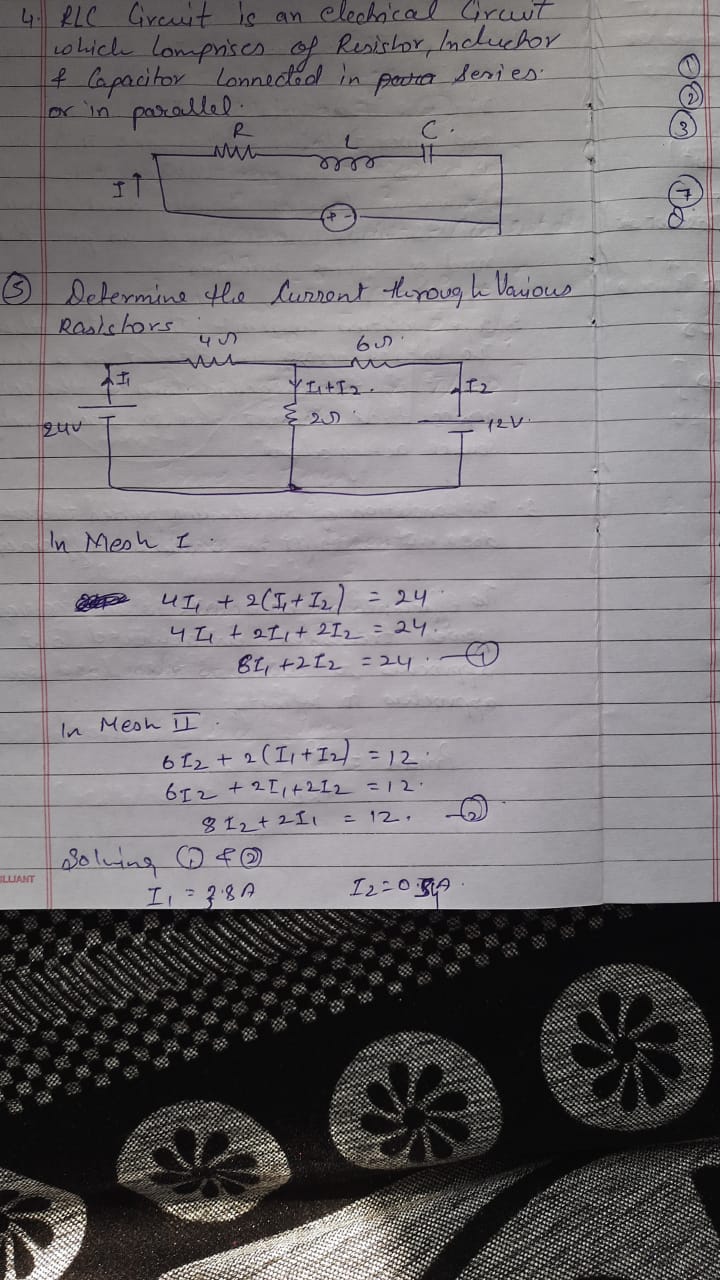 4. RLC Circuit is an electrical Circuit
which Comprises of Resistor, Inductor
& Capacitor Connected in series.
or in parallel.
R L C.
I↑
+ -
①
②
③
⑦
8
⑤ Determine the Current through Various
Rasistors
4Ω 6Ω
I₁ I₁+I₂. I₂
24V 2Ω 12V.
In Mesh I.
4I₁ + 2(I₁+I₂) = 24
4I₁ + 2I₁ + 2I₂ = 24.
6I₁ + 2I₂ = 24. —①
In Mesh II.
6I₂ + 2(I₁+I₂) = 12.
6I₂ + 2I₁+2I₂ = 12.
8I₂ + 2I₁ = 12. —②
Solving ① & ②
I₁ = 3.8A
ILLIANT